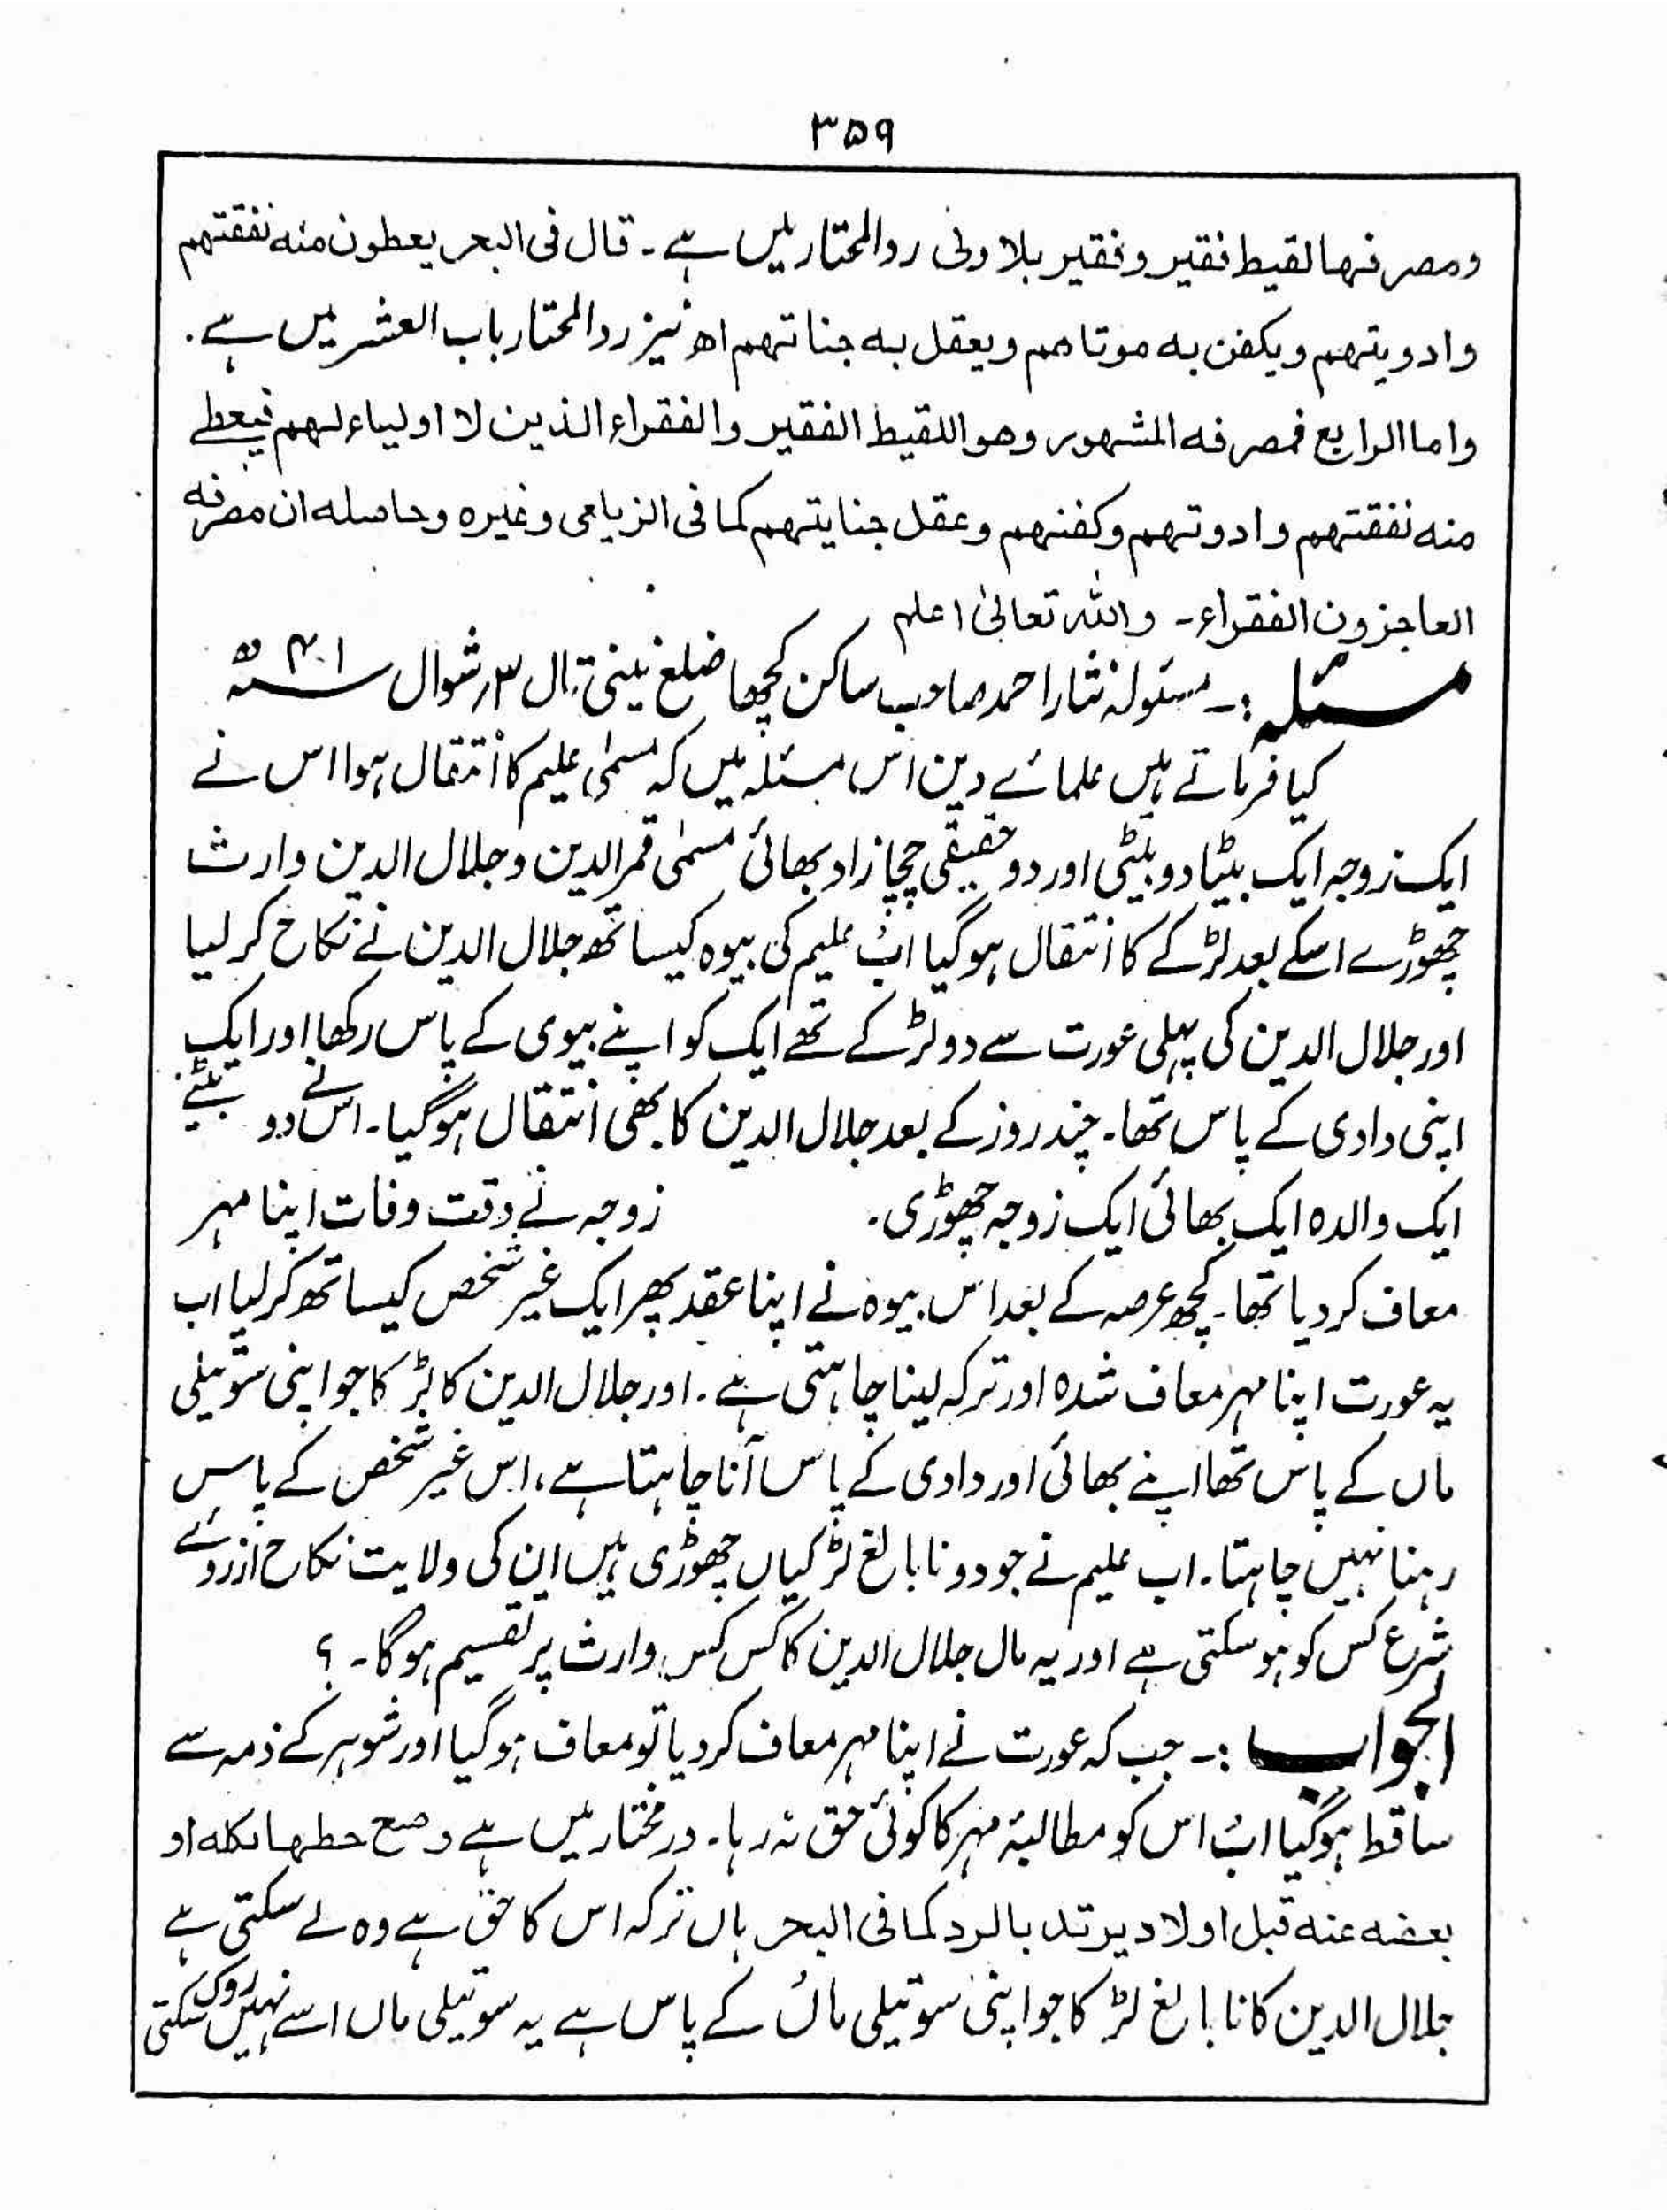 ۳۵۹
ومصرفہا لقیط فقیر وفقیر بلا ولی ردالمحتار میں ہے۔ قال فی البحر یعطون منہ نفقتہم
وادویتہم ویکفن بہ موتاھم ویعقل بہ جنایتہم اھ نیز ردالمحتار باب العشر میں ہے۔
واما الرابع فمصرفہ المشہور وھو اللقیط الفقیر والفقراء الذین لا اولیاء لہم فیعطے
منہ نفقتہم وادوتہم وکفنہم وعقل جنایتہم کما فی الزیلعی وغیرہ وحاصلہ ان مصرفہ
العاجزون الفقراء۔ واللہ تعالیٰ اعلم
مسئلہ:۔ مسئولہ نثار احمد صاحب ساکن کچھا ضلع نینی تال ۳؍شوال
کیا فرماتے ہیں علمائے دین اس مسئلہ میں کہ مسمیٰ علیم کا انتقال ہوا اس نے
ایک زوجہ ایک بیٹا دو بیٹی اور دو حقیقی چچا زاد بھائی مسمیٰ قمرالدین وجلال الدین وارث
چھوڑے اسکے بعد لڑکے کا انتقال ہوگیا اب علیم کی بیوہ کیساتھ جلال الدین نے نکاح کرلیا
اور جلال الدین کی پہلی عورت سے دو لڑکے تھے ایک کو اپنے بیوی کے پاس رکھا اور ایک
اپنی دادی کے پاس تھا۔ چند روز کے بعد جلال الدین کا بھی انتقال ہوگیا۔ اس نے دو بیٹے
ایک والدہ ایک بھائی ایک زوجہ چھوڑی۔ زوجہ نے وقت وفات اپنا مہر
معاف کردیا تھا۔ کچھ عرصہ کے بعد اس بیوہ نے اپنا عقد پھر ایک غیر شخص کیساتھ کرلیا اب
یہ عورت اپنا مہر معاف شدہ اور ترکہ لینا چاہتی ہے۔ اور جلال الدین کا لڑکا جو اپنی سوتیلی
ماں کے پاس تھا اپنے بھائی اور دادی کے پاس آنا چاہتا ہے، اس غیر شخص کے پاس
رہنا نہیں چاہتا۔ اب علیم نے جو دو نابالغ لڑکیاں چھوڑی ہیں ان کی ولایت نکاح ازروئے
شرع کس کو ہوسکتی ہے اور یہ مال جلال الدین کا کس کس وارث پر تقسیم ہوگا۔؟
الجواب:۔ جب کہ عورت نے اپنا مہر معاف کردیا تو معاف ہوگیا اور شوہر کے ذمہ سے
ساقط ہوگیا اب اس کو مطالبۂ مہر کا کوئی حق نہ رہا۔ درمختار میں ہے وصح حطہا لکلہ او
بعضہ عنہ قبل اولا دیرتد بالرد کما فی البحر ہاں ترکہ اس کا حق ہے وہ لے سکتی ہے
جلال الدین کا نابالغ لڑکا جو اپنی سوتیلی ماں کے پاس ہے یہ سوتیلی ماں اسے نہیں روک سکتی